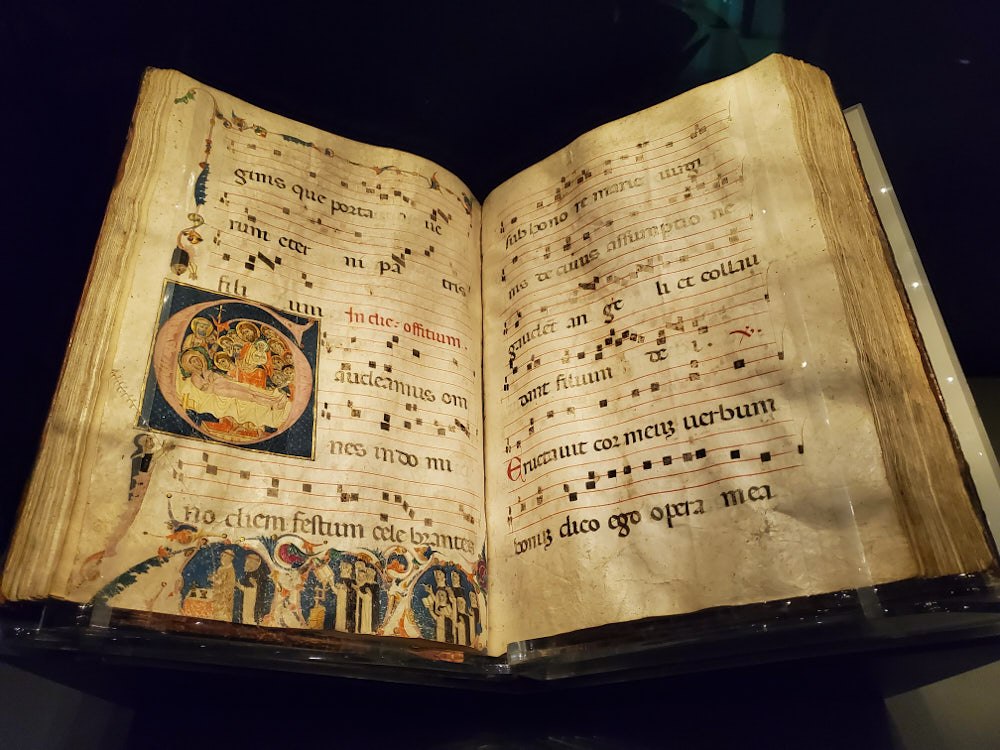 ginis que porta ue
rum etet ni pa tris
fili um In die. offitium.
Gaudeamus om
nes in do mi
no diem festum cele brantes
sub hono re marie uirgi
nis de cuius assumptio ne
gaudet an ge li et collau
dant filium de i. V.
Eructauit cor meuʒ uerbum
bonuʒ dico ego opera mea